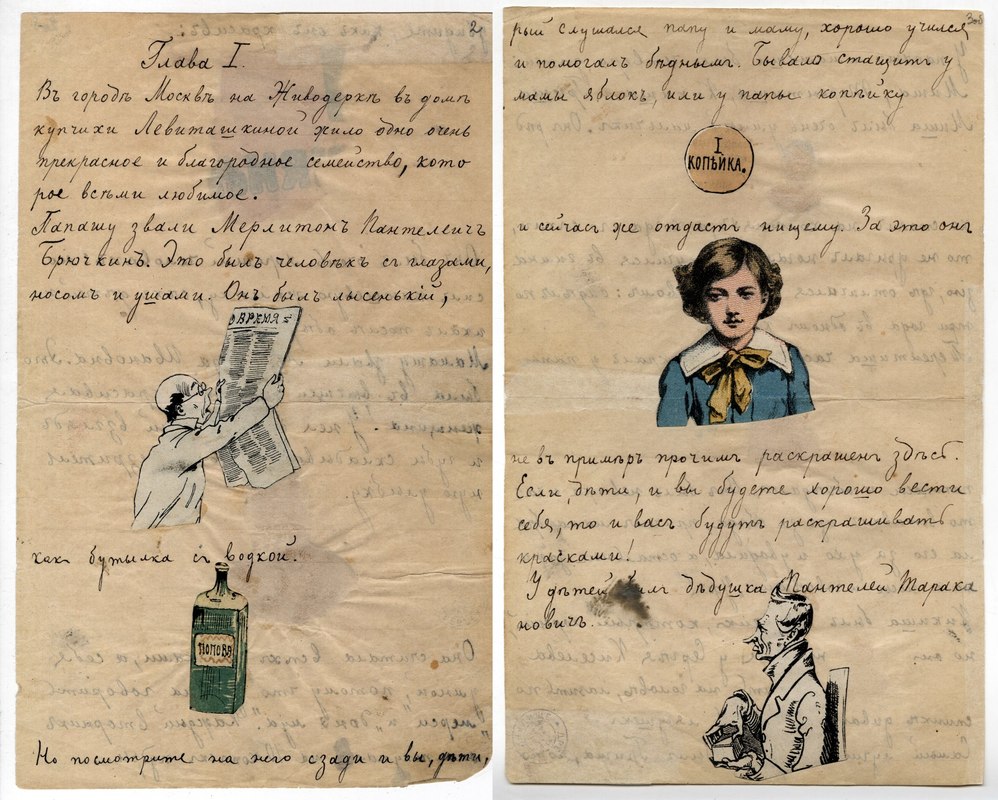 2
Глава I.
Въ городѣ Москвѣ на Живодеркѣ въ домѣ
купчихи Левиташкиной жило одно очень
прекрасное и благородное семейство, кото
рое всѣми любимое.
Папашу звали Мерлитонъ Пантелеичъ
Брючкинъ. Это былъ человѣкъ съ глазами,
носомъ и ушами. Онъ былъ лысенькій,
ВРЕМЯ
какъ бутылка съ водкой.
ПОПОВА
Но посмотрите на него сзади и вы, дѣти,
3об
рый слушался папу и маму, хорошо учился
и помогалъ бѣднымъ. Бывало стащитъ у
мамы яблокъ, или у папы копѣйку
I
КОПѢЙКА.
и сейчасъ же отдастъ нищему. За это онъ
не въ примѣръ прочимъ раскрашенъ здѣсь.
Если, дѣти, и вы будете хорошо вести
себя, то и васъ будутъ раскрашивать
красками!
У дѣтей былъ дѣдушка Пантелей Тарака
новичъ.